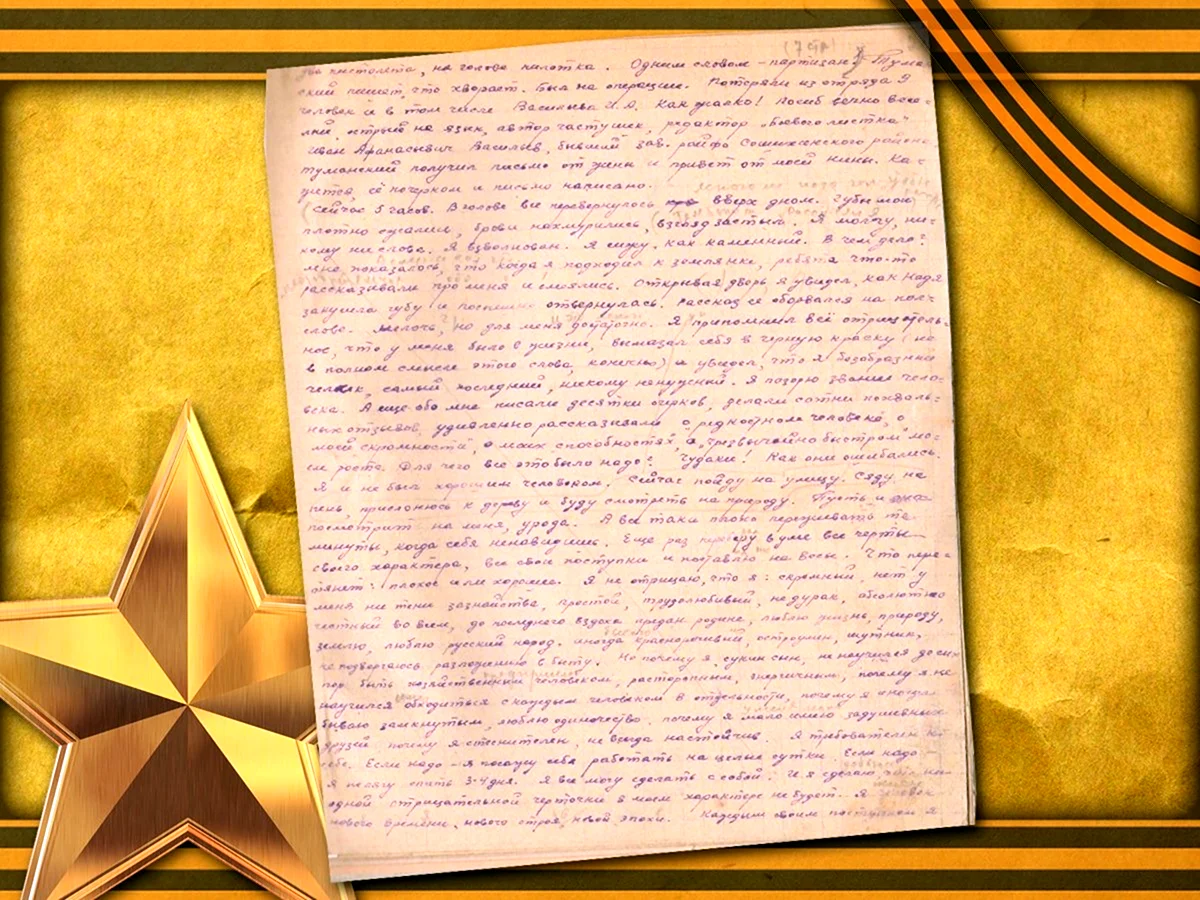 два пистолета, на голове пилотка. Одним словом – партизан. Туман-
ский пишет, что хворает. Был на операции. Потеряли из отряда 9
человек и в том числе Васильева И.А. Как жалко! Погиб вечно весе-
лый, острый на язык, автор частушек, редактор „Боевого листка"
Иван Афанасьевич Васильев, бывший зав. райфо Сошихинского района.
Туманский получил письмо от жены и привет от моей Нины. Ка-
жется, её почерком и письмо написано.
Сейчас 5 часов. В голове все перевернулось вверх дном. Губы мои
плотно сжались, брови нахмурились, взгляд застыл. Я молчу, ни-
кому ни слова. Я взволнован. Я сижу, как каменный. В чем дело?
Мне показалось, что когда я подходил к землянке, ребята что-то
рассказывали про меня и смеялись. Открывая дверь я увидел, как Надя
закусила губу и поспешно отвернулась. Рассказ её оборвался на полу-
слове. Мелочь, но для меня достаточно. Я припомнил всё отрицатель-
ное, что у меня было в жизни, вымазал себя в черную краску (не
в полном смысле этого слова, конечно) и увидел, что я безобразный
человек, самый последний, никому ненужный. Я позорю звание чело-
века. А еще обо мне писали десятки очерков, делали сотни похваль-
ных отзывов, удивленно рассказывали о „редкостном человеке", о
„моей скромности", о моих способностях, о „чрезвычайно быстром" мо-
ем росте. Для чего всё это было надо? Чудаки! Как они ошибались.
Я и не был хорошим человеком. Сейчас пойду на улицу. Сяду на
пень, прислонюсь к дереву и буду смотреть на природу. Пусть и она
посмотрит на меня, урода. А все таки плохо переживать те
минуты, когда себя ненавидишь. Еще раз проверю в уме все черты
своего характера, все свои поступки и поставлю на весы. Что пере-
тянет: плохое или хорошее. Я не отрицаю, что я: скромный, нет у
меня ни тени зазнайства, простой, трудолюбивый, не дурак, абсолютно
честный во всем, до последнего вздоха предан родине, люблю жизнь, природу,
землю, люблю русский народ. иногда красноречивый, остроумен, шутник,
не подвергаюсь разложению в быту. Но почему я, сукин сын, не научился до сих
пор быть хозяйственным человеком, расторопным, энергичным, почему я не
научился обходиться с каждым человеком в отдельности, почему я иногда
бываю замкнутым, люблю одиночество, почему я мало имею задушевных
друзей, почему я стеснителен, не всегда настойчив. Я требователен к
себе. Если надо – я посажу себя работать на целые сутки. Если надо –
я не лягу спать 3-4 дня. Я все могу сделать с собой. И я сделаю, что ни
одной отрицательной черточки в моем характере не будет. Я человек
нового времени, нового строя, новой эпохи. Каждым своим поступком я